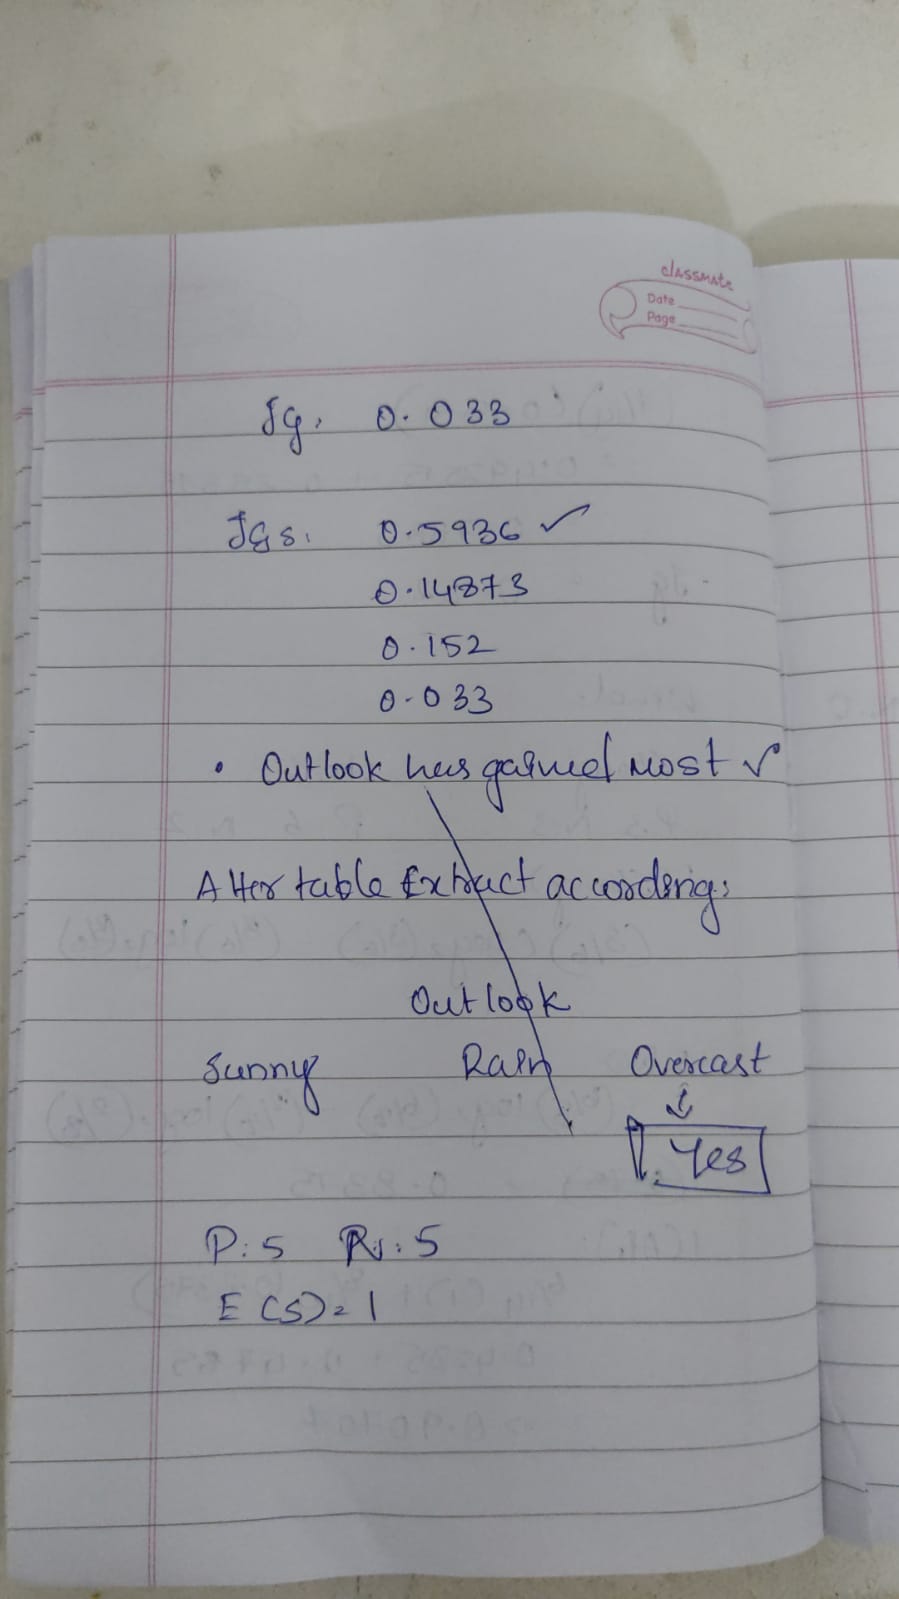 classmate
Date
Page
Ig. 0.033
IGs. 0.5936 ✓
0.14873
0.152
0.033
• Outlook has gained most ✓
Alter table Extract according:
Outlook
Sunny Rain Overcast
↓
Yes
P: 5 : 5
E(S) = 1